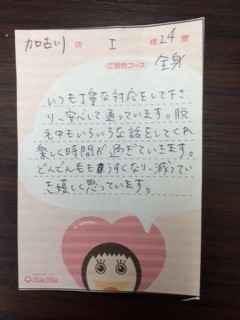 加古川 店 I 様 24 歳
ご契約コース 全身
いつも丁寧な対応をして下さ
り、安心して通っています。脱
毛中もいろいろな話をしてくれ
楽しく時間が過ぎていきます。
どんどん毛もうすくなり、減ってい
き嬉しく思っています。